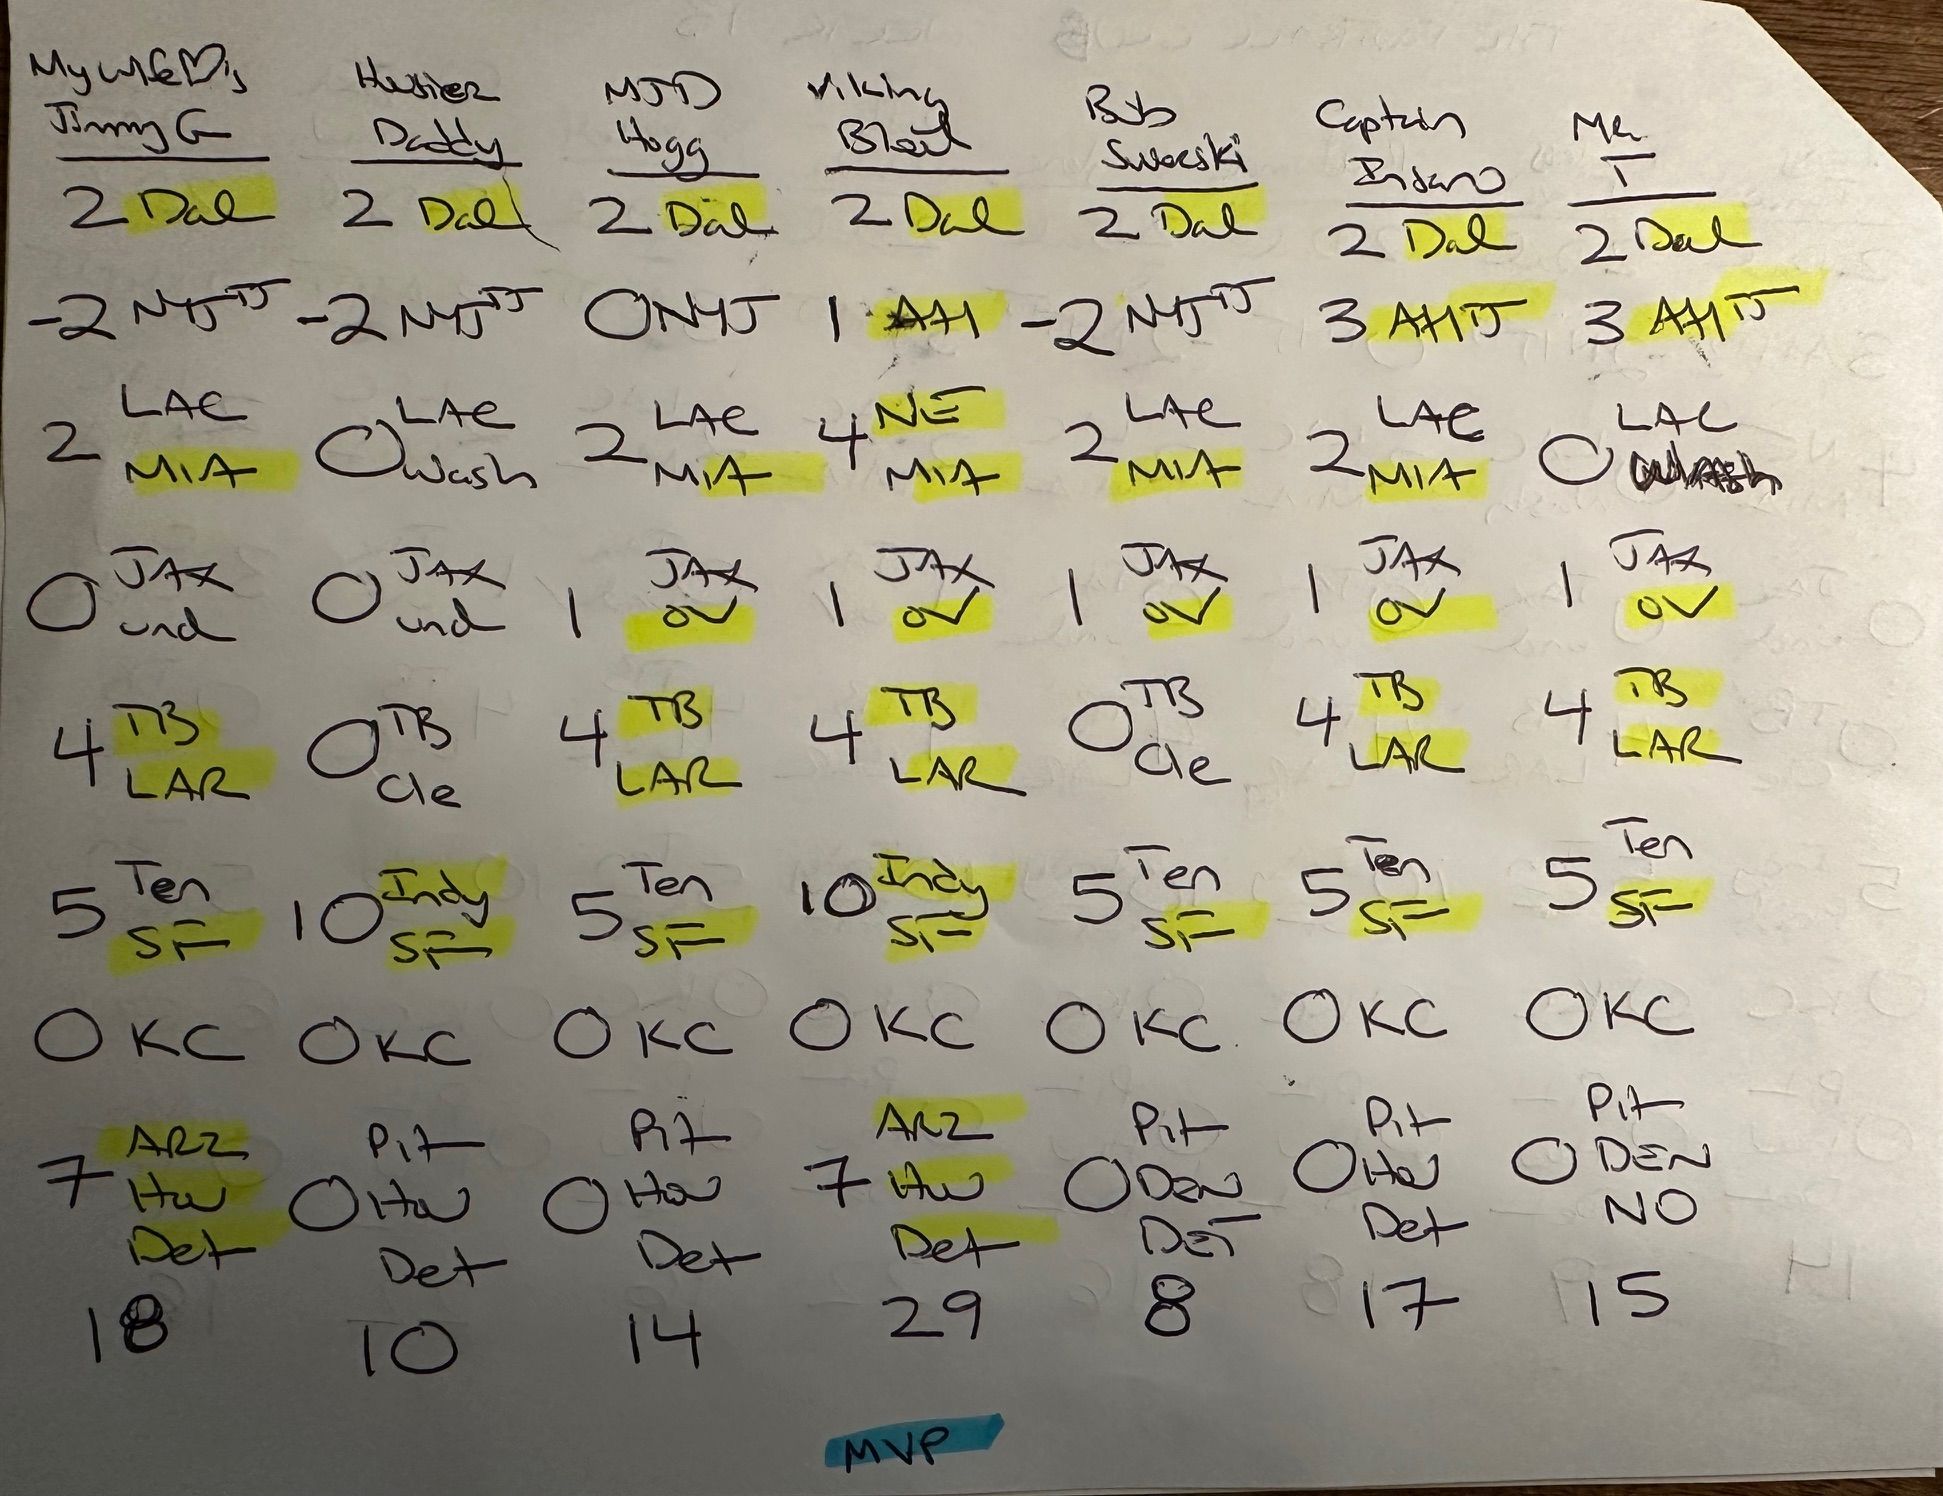 My wife ♡'s Hoosier MJD Viking Bob Captain Mr
Jimmy G Daddy Hogg Swerski Insano T
2 Dal 2 Dal 2 Dal 2 Dal 2 Dal 2 Dal 2 Dal
-2 NYJ TJ -2 NYJ TJ 0 NYJ 1 Atl -2 NYJ TJ 3 Atl TJ 3 Atl TJ
2 LAC 0 LAC 2 LAC 4 NE 2 LAC 2 LAC 0 LAC
MIA Wash MIA MIA MIA MIA Wash
0 JAX 0 JAX 1 JAX 1 JAX 1 JAX 1 JAX 1 JAX
und und OV OV OV OV OV
4 TB 0 TB 4 TB 4 TB 0 TB 4 TB 4 TB
LAR Cle LAR LAR Cle LAR LAR
5 Ten 10 Indy 5 Ten 10 Indy 5 Ten 5 Ten 5 Ten
SF SF SF SF SF SF SF
0 KC 0 KC 0 KC 0 KC 0 KC 0 KC 0 KC
ARZ Pit Pit ARZ Pit Pit Pit
7 Hou 0 Hou 0 Hou 7 Hou 0 Den 0 Hou 0 DEN
Det Det Det Det DET Det NO
18 10 14 29 8 17 15
MVP